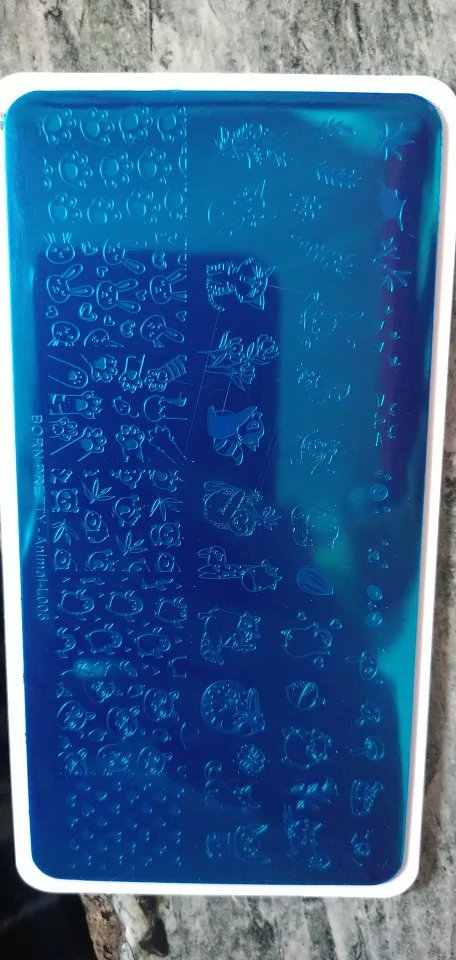 BORN PRETTY Animal-L003